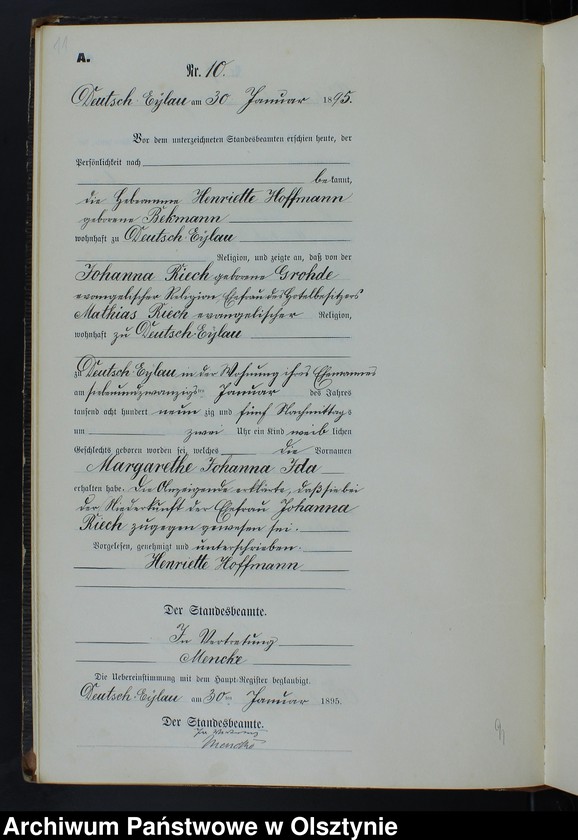 A.
Nr. 10.
Deutsch-Eylau am 30 Januar 1895.
Vor dem unterzeichneten Standesbeamten erschien heute, der
Persönlichkeit nach
bekannt,
die Hebamme Henriette Hoffmann
geborene Bekmann
wohnhaft zu Deutsch-Eylau
Religion, und zeigte an, daß von der
Johanna Riech geborene Grohde
evangelischer Religion, Ehefrau des Hotelbesitzers
Mathias Riech evangelischer Religion,
wohnhaft zu Deutsch-Eylau
zu Deutsch-Eylau in der Wohnung ihres Ehemannes
am siebenundzwanzigsten Januar des Jahres
tausend acht hundert neunzig und fünf Nachmittags
um zwei Uhr ein Kind weiblichen
Geschlechts geboren worden sei, welches die Vornamen
Margarethe Johanna Ida
erhalten habe. Die Anzeigende erklärte, daß sie bei
der Niederkunft der Ehefrau Johanna
Riech zugegen gewesen sei.
Vorgelesen, genehmigt und unterschrieben.
Henriette Hoffmann
Der Standesbeamte.
In Vertretung
Mencke
Die Uebereinstimmung mit dem Haupt-Register beglaubigt.
Deutsch-Eylau am 30ten Januar 1895.
Der Standesbeamte.
In Vertretung
Mencke
Archiwum Państwowe w Olsztynie